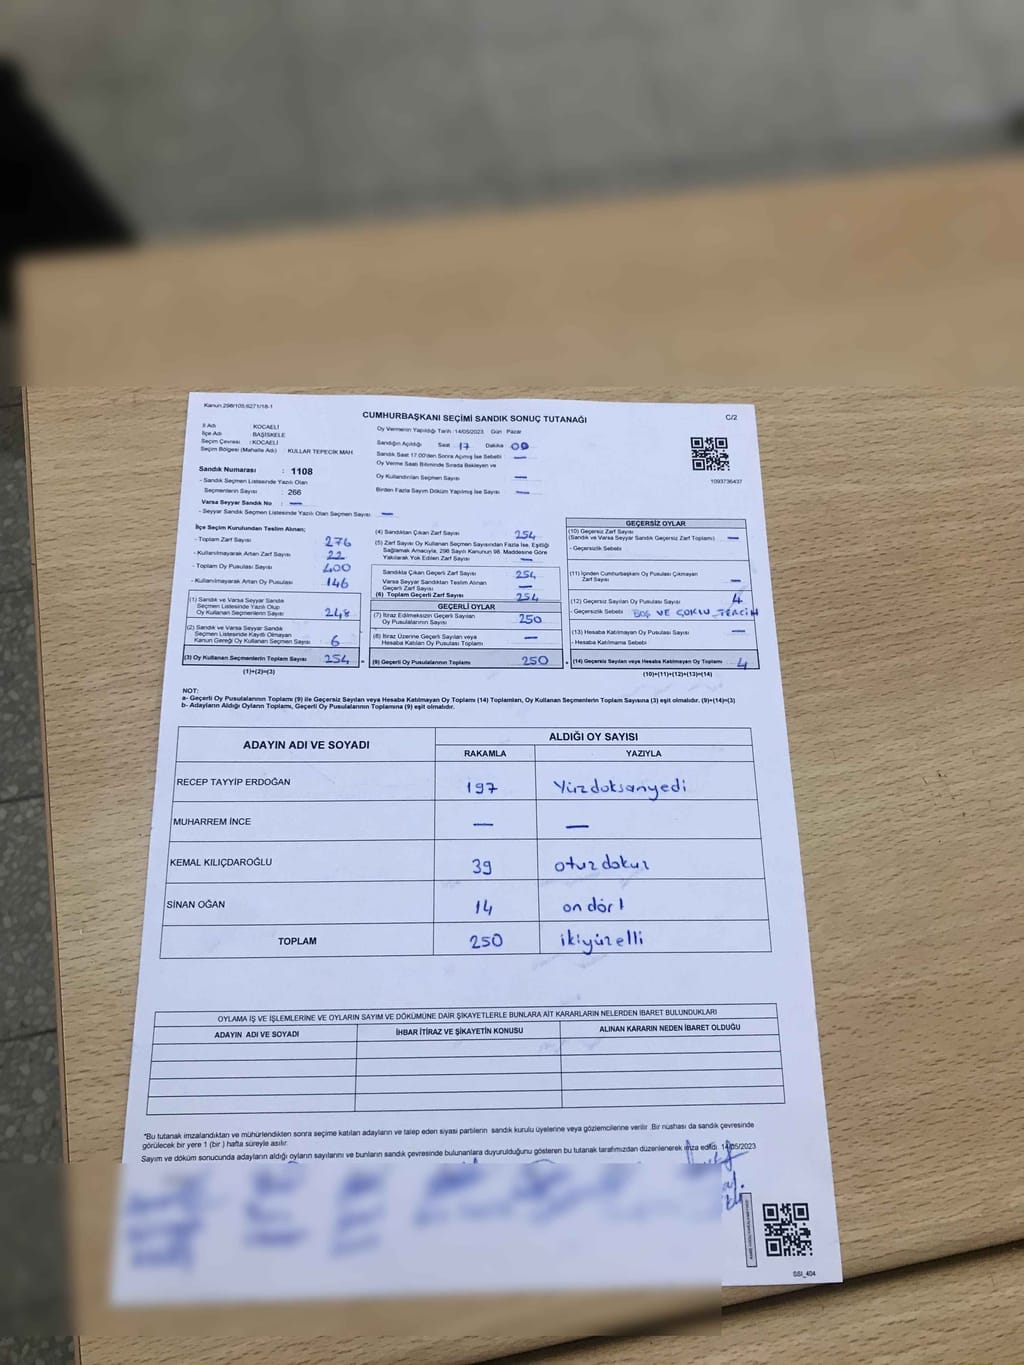 Kanun:298/105;6271/18-1
CUMHURBAŞKANI SEÇİMİ SANDIK SONUÇ TUTANAĞI
C/2
İl Adı KOCAELİ
İlçe Adı BAŞİSKELE
Seçim Çevresi : KOCAELİ
Seçim Bölgesi (Mahalle Adı) : KULLAR TEPECİK MAH
Sandık Numarası : 1108
- Sandık Seçmen Listesinde Yazılı Olan
Seçmenlerin Sayısı : 266
Varsa Seyyar Sandık No : —
- Seyyar Sandık Seçmen Listesinde Yazılı Olan Seçmen Sayısı —
Oy Vermenin Yapıldığı Tarih :14/05/2023 Gün : Pazar
Sandığın Açıldığı Saat 17 Dakika 00
Sandık Saat 17.00'den Sonra Açılmış İse Sebebi —
Oy Verme Saati Bitiminde Sırada Bekleyen ve
Oy Kullandırılan Seçmen Sayısı —
Birden Fazla Sayım Döküm Yapılmış İse Sayısı —
1093736437
İlçe Seçim Kurulundan Teslim Alınan;
- Toplam Zarf Sayısı 276
- Kullanılmayarak Artan Zarf Sayısı 22
- Toplam Oy Pusulası Sayısı 400
- Kullanılmayarak Artan Oy Pusulası 146
(1) Sandık ve Varsa Seyyar Sandık
Seçmen Listesinde Yazılı Olup
Oy Kullanan Seçmenlerin Sayısı 248
(2) Sandık ve Varsa Seyyar Sandık
Seçmen Listesinde Kayıtlı Olmayan
Kanun Gereği Oy Kullanan Seçmen Sayısı 6
(3) Oy Kullanan Seçmenlerin Toplam Sayısı 254
(1)+(2)=(3)
(4) Sandıktan Çıkan Zarf Sayısı 254
(5) Zarf Sayısı Oy Kullanan Seçmen Sayısından Fazla İse, Eşitliği
Sağlamak Amacıyla, 298 Sayılı Kanunun 98. Maddesine Göre
Yakılarak Yok Edilen Zarf Sayısı —
Sandıkta Çıkan Geçerli Zarf Sayısı 254
Varsa Seyyar Sandıktan Teslim Alınan
Geçerli Zarf Sayısı —
(6) Toplam Geçerli Zarf Sayısı 254
GEÇERLİ OYLAR
(7) İtiraz Edilmeksizin Geçerli Sayılan
Oy Pusulalarının Sayısı 250
(8) İtiraz Üzerine Geçerli Sayılan veya
Hesaba Katılan Oy Pusulası Toplamı —
= (9) Geçerli Oy Pusulalarının Toplamı 250
GEÇERSİZ OYLAR
(10) Geçersiz Zarf Sayısı
(Sandık ve Varsa Seyyar Sandık Geçersiz Zarf Toplamı) —
- Geçersizlik Sebebi
(11) İçinden Cumhurbaşkanı Oy Pusulası Çıkmayan
Zarf Sayısı —
(12) Geçersiz Sayılan Oy Pusulası Sayısı 4
- Geçersizlik Sebebi BOŞ VE ÇOKLU TERCİH
(13) Hesaba Katılmayan Oy Pusulası Sayısı —
- Hesaba Katılmama Sebebi
+ (14) Geçersiz Sayılan veya Hesaba Katılmayan Oy Toplamı 4
(10)+(11)+(12)+(13)=(14)
NOT:
a- Geçerli Oy Pusulalarının Toplamı (9) ile Geçersiz Sayılan veya Hesaba Katılmayan Oy Toplamı (14) Toplamları, Oy Kullanan Seçmenlerin Toplam Sayısına (3) eşit olmalıdır. (9)+(14)=(3)
b- Adayların Aldığı Oyların Toplamı, Geçerli Oy Pusulalarının Toplamına (9) eşit olmalıdır.
ADAYIN ADI VE SOYADI
ALDIĞI OY SAYISI
RAKAMLA YAZIYLA
RECEP TAYYİP ERDOĞAN 197 Yüzdoksanyedi
MUHARREM İNCE — —
KEMAL KILIÇDAROĞLU 39 otuzdokuz
SİNAN OĞAN 14 on dört
TOPLAM 250 ikiyüzelli
OYLAMA İŞ VE İŞLEMLERİNE VE OYLARIN SAYIM VE DÖKÜMÜNE DAİR ŞİKAYETLERLE BUNLARA AİT KARARLARIN NELERDEN İBARET BULUNDUKLARI
ADAYIN ADI VE SOYADI İHBAR İTİRAZ VE ŞİKAYETİN KONUSU ALINAN KARARIN NEDEN İBARET OLDUĞU
"Bu tutanak imzalandıktan ve mühürlendikten sonra seçime katılan adayların ve talep eden siyasi partilerin sandık kurulu üyelerine veya gözlemcilerine verilir .Bir nüshası da sandık çevresinde
görülecek bir yere 1 (bir ) hafta süreyle asılır.
Sayım ve döküm sonucunda adayların aldığı oyların sayılarını ve bunların sandık çevresinde bulunanlara duyurulduğunu gösteren bu tutanak tarafımızdan düzenlenerek imza edildi. 14/05/2023
SSI_404